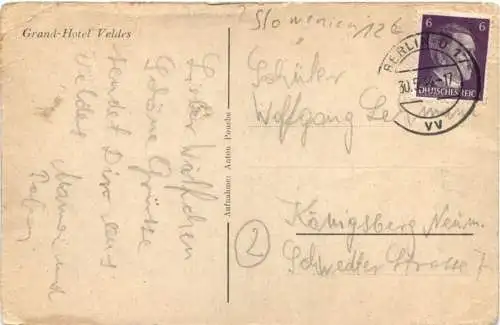 Grand-Hotel Veldes
Slowenien 12 €
Lieber Wölfchen
Schöne Grüsse
sendet Dir aus
Veldes Mama und
Aufnahme: Anton Pouche
6 6
DEUTSCHES REICH
BERLIN
30.5
VV
Schüler
Wolfgang
2
Königsberg Neum.
Schwedter Strasse 7